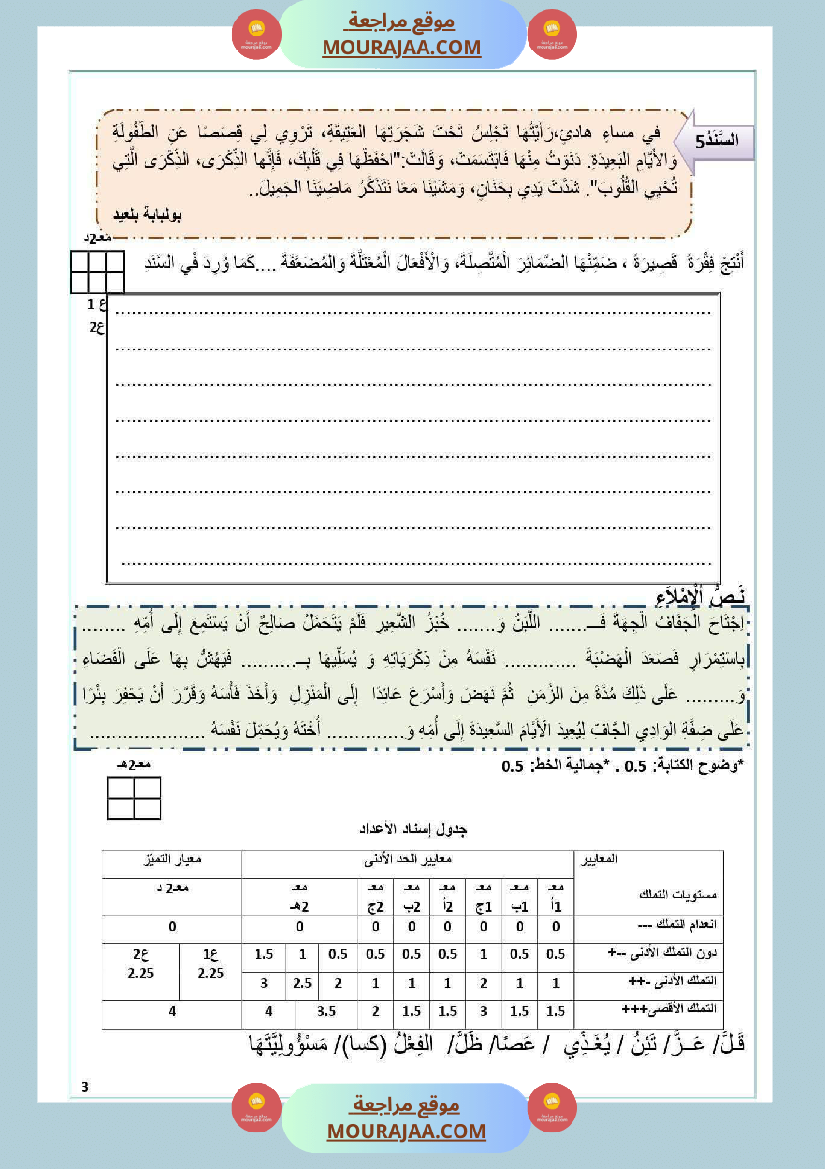 موقع مراجعة
MOURAJAA.COM
السَّنَدُ5
في مساءٍ هادئٍ،رَأَيْتُها تَجْلِسُ تَحْتَ شَجَرَتِهَا العَتِيقَةِ، تَرْوِي لِي قِصَصًا عَنِ الطُّفُولَةِ
وَالأَيَّامِ البَعِيدَةِ. دَنَوْتُ مِنْهَا فَابْتَسَمَتْ، وَقَالَتْ:"احْفَظْهَا فِي قَلْبِكَ، فَإِنَّها الذِّكْرَى، الذِّكْرَى الَّتِي
تُحْيِي القُلُوبَ". شَدَّتْ يَدِي بِحَنَانٍ، وَمَشَيْنَا مَعًا نَتَذَكَّرُ مَاضِيَنَا الجَمِيلَ..
بولبابة بلعيد
معـ2د
أُنْتِجُ فِقْرَةً قَصِيرَةً ، ضَمِّنْهَا الضَّمَائِرَ الْمُتَّصِلَةَ، وَالْأَفْعَالَ الْمُعْتَلَّةَ وَالْمُضَعَّفَةَ ....كَمَا وُرِدَ فْي السَّنَدِ
ع 1
ع2
نَـصُّ اُلْإِمْلَاَءِ
اِجْتَاحَ الْجَفَافُ الْجِهَةَ فَـــ....... اللَّبَنُ وَ....... خُبْزُ الشَّعِيرِ فَلَمْ يَتَحَمَّلْ صالِحٌ أَنْ يَسْتَمِعَ إِلَى أُمِّهِ ........
بِاسْتِمْرَارٍ فَصَعَدَ الْهَضْبَةَ ............ نَفْسَهُ مِنْ ذِكْرَيَاتِهِ وَ يُسَلِّيهَا بِـ.......... فَيَهُشُّ بِهَا عَلَى الْفَضَاءِ
وَ......... عَلَى ذَلِكَ مُدَّةً مِنَ الزَّمَنِ ثُمَّ نَهَضَ وَأَسْرَعَ عَائِدًا إِلَى الْمَنْزِلِ وَأَخَذَ فَأْسَهُ وَقَرَّرَ أَنْ يَحْفِرَ بِئْرًا
عَلَى ضِفَّةِ الوَادِي الْجَافِّ لِيُعِيدَ الْأَيَّامَ السَّعِيدَةَ إِلَى أُمِّهِ وَ.............. أُخْتَهُ وَيُحَمِّلَ نَفْسَهُ .....................
*وضوح الكتابة: 0.5 . *جمالية الخط: 0.5
معـ2هـ
جدول إسناد الأعداد
المعايير معايير الحد الأدنى معيار التميّز
مستويات التملك معـ 1أ معـ 1ب معـ 1ج معـ 2أ معـ 2ب معـ 2ج معـ 2هـ معـ2 د
انعدام التملك --- 0 0 0 0 0 0 0 0
دون التملك الأدنى --+ 0.5 0.5 1 0.5 0.5 0.5 0.5 1 1.5 ع1 2.25 ع2 2.25
التملك الأدنى -++ 1 1 2 1 1 1 2 2.5 3
التملك الأقصى+++ 1.5 1.5 3 1.5 1.5 2 3.5 4 4
قَـلَّ/ عَــزَّ/ تَئِنُّ / يُغَـذِّي / عَصًا/ ظَلَّ/ الفِعْلُ (كسا)/ مَسْؤُولِيَّتَهَا
3
موقع مراجعة
MOURAJAA.COM